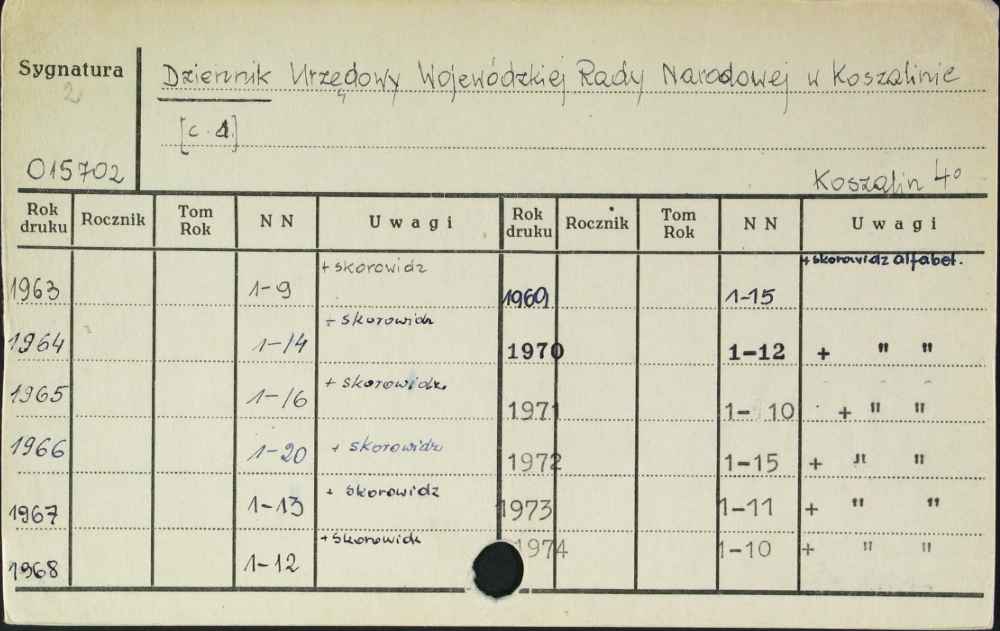 Sygnatura
2
015702
Dziennik Urzędowy Wojewódzkiej Rady Narodowej w Koszalinie
[c.d.]
Koszalin 4°
Rok druku Rocznik Tom Rok N N Uwagi Rok druku Rocznik Tom Rok N N Uwagi
1963 1-9 + skorowidz 1969 1-15 + skorowidz alfabet.
1964 1-14 + skorowidz 1970 1-12 + " "
1965 1-16 + skorowidz 1971 1-10 + " "
1966 1-20 + skorowidz 1972 1-15 + " "
1967 1-13 + skorowidz 1973 1-11 + " "
1968 1-12 + skorowidz 1974 1-10 + " "